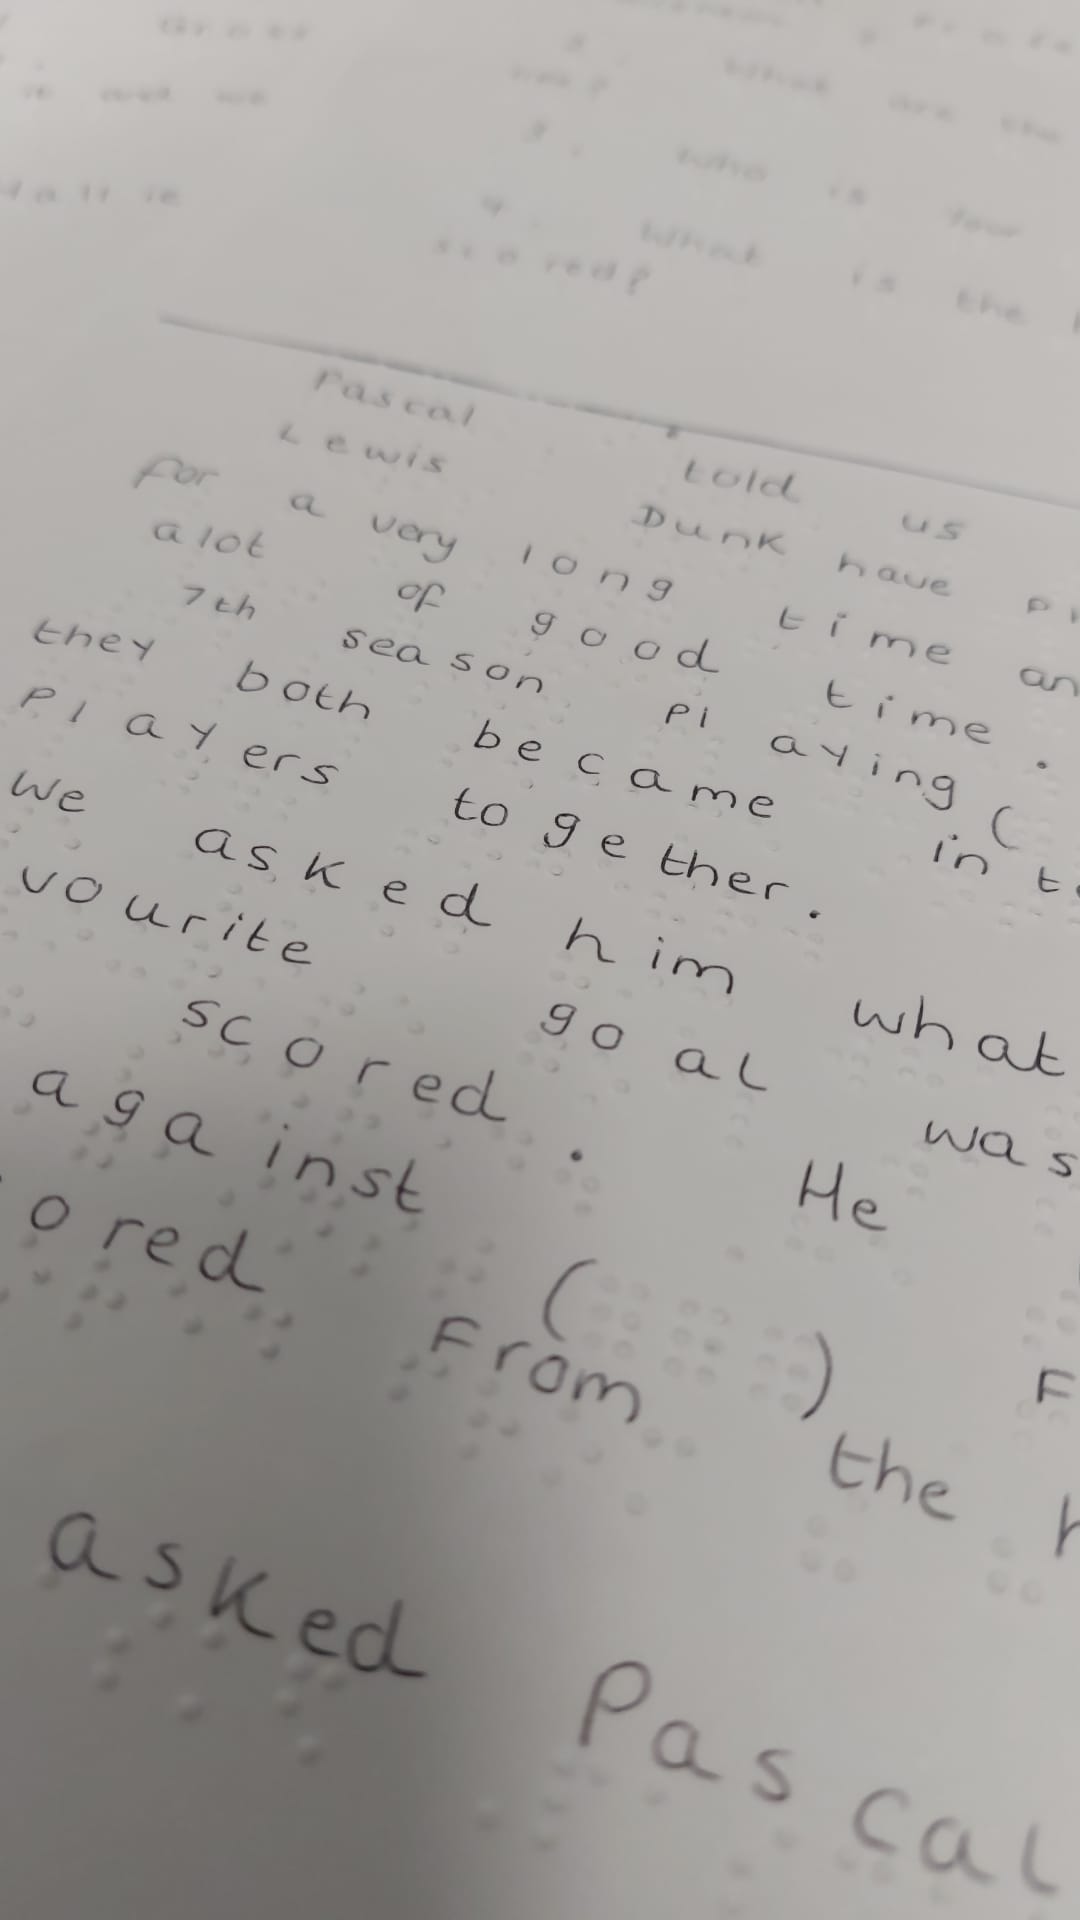 What are the
3. Who is your
4. What is the
scored?
Pascal told us
Lewis Dunk have Pl
for a very long time an
alot of good time.
7th season Playing (
they both became in te
Players together.
We asked him what
vourite goal was
scored. He
against ( ) F
ored From the h
asked Pascal